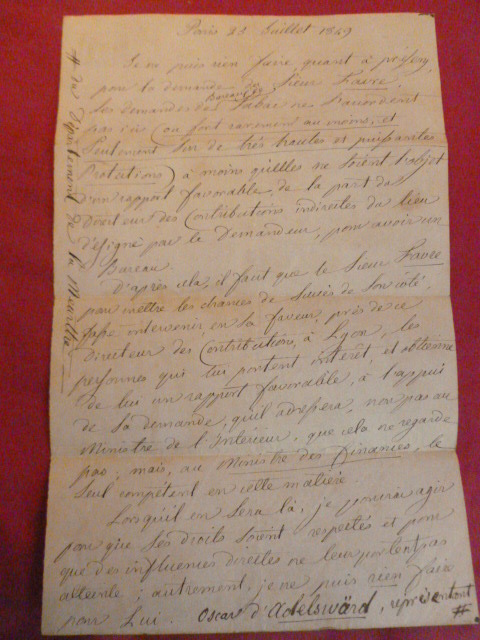 Paris 23 Juillet 1849
Je ne puis rien faire, quant à présent,
pour la demande du Sieur Favre.
Les demandes de Bureaux de Tabac ne s'accordent
pas ici (ou font rarement au moins, et
Seulement sur de très hautes et puissantes
Protections) à moins qu'elles ne soient l'objet
d'un rapport favorable, de la part du
Directeur des Contributions indirectes du lieu
désigné par le Demandeur, pour avoir un
Bureau.
D'après cela, il faut que le Sieur Favre
pour mettre les chances de Succès de Son côté,
fasse intervenir en sa faveur, près de ce
Directeur des Contributions, à Lyon, les
personnes qui lui portent intérêt, et obtienne
de lui un rapport favorable, à l'appui
de sa demande, qu'il adressera, non pas au
Ministre de l'Intérieur, que cela ne regarde
pas; mais, au Ministre des Finances, le
Seul compétent en cette matière.
Lorsqu'il en Sera là, je pourrai agir
pour que Ses droits Soient respectés et pour
que des influences directes ne leur portent pas
atteinte; autrement, je ne puis rien faire
pour Lui. Oscar d'Adelswärd, représentant
#
# du Département de la Meurthe